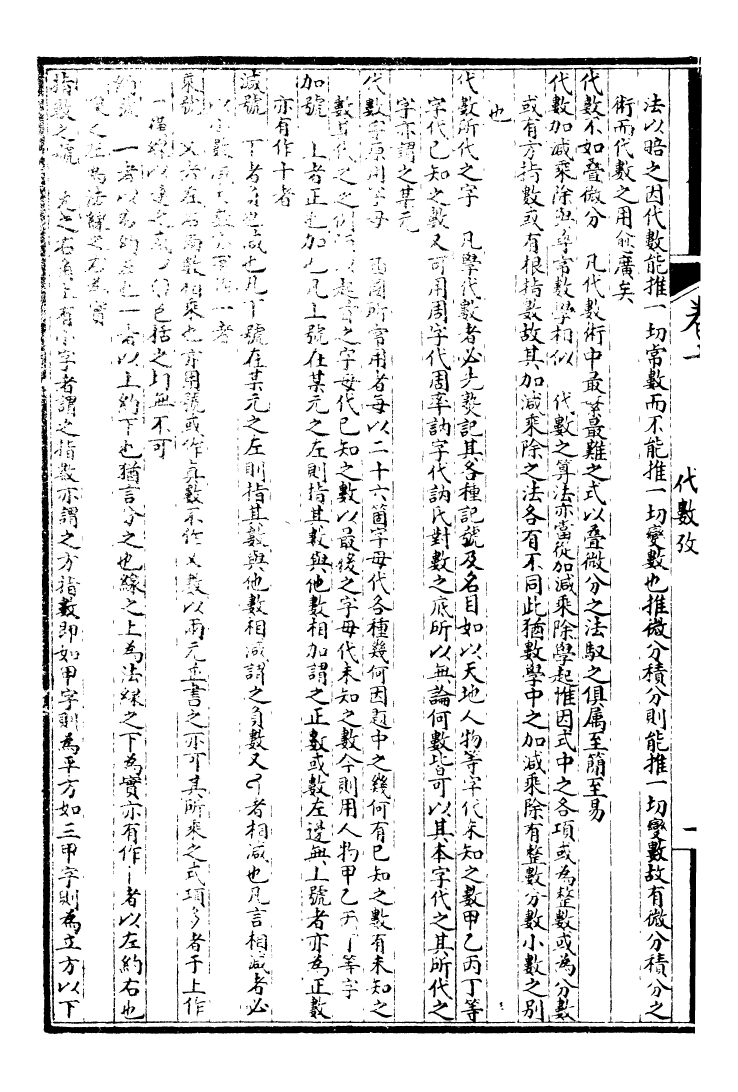 代數攷
一
法以賅之因代數能推一切常數而不能推一切變數也推微分積分則能推一切變數故有微分積分之
術而代數之用愈廣矣
代數不如叠微分　凡代數術中最繁最難之式以叠微分之法馭之俱属至簡至易
代數加減乘除與尋常數學相似　代數之算法亦當從加減乘除學起惟因式中之各項或為整數或為分數
或有方指數或有根指數故其加減乘除之法各有不同此猶數學中之加減乘除有整數分數小數之别
也
代數所代之字　凡學代數者必先熟記其各種記號及名目如以天地人物等字代未知之數甲乙丙丁等
字代已知之數又可用周字代周率訥字代訥氏對數之底所以無論何數皆可以其本字代之其所代之
字亦謂之某元
代數字原用字母　西國所常用者每以二十六箇字母代各種幾何因題中之幾何有已知之數有未知之
數其代之之例恒以起首之字母代已知之數以最後之字母代未知之數今則用人物甲乙丙丁等字
加號　⊥者正也加也凡⊥號在某元之左則指其數與他數相加謂之正數或數左邊無⊥號者亦為正數
亦有作十者
減號　丅者負也減也凡丅號在某元之左則指其數與他數相減謂之負數又者相減也凡言相減者必
以小數減大數
乘號　乂者左右兩數相乘也亦用號或作真數不作乂數以兩元並書之亦可其所乘之式項多者于上作
一線以連之或包括之均無不可
約號　一者以右約左也一者以上約下也猶言分之也線之上為法線之下為實亦有作丨者以左約右也
線之左為法線之右為實
指數之號　元之右角上有小字者謂之指數亦謂之方指數即如甲字則為平方如三甲字則為立方以下